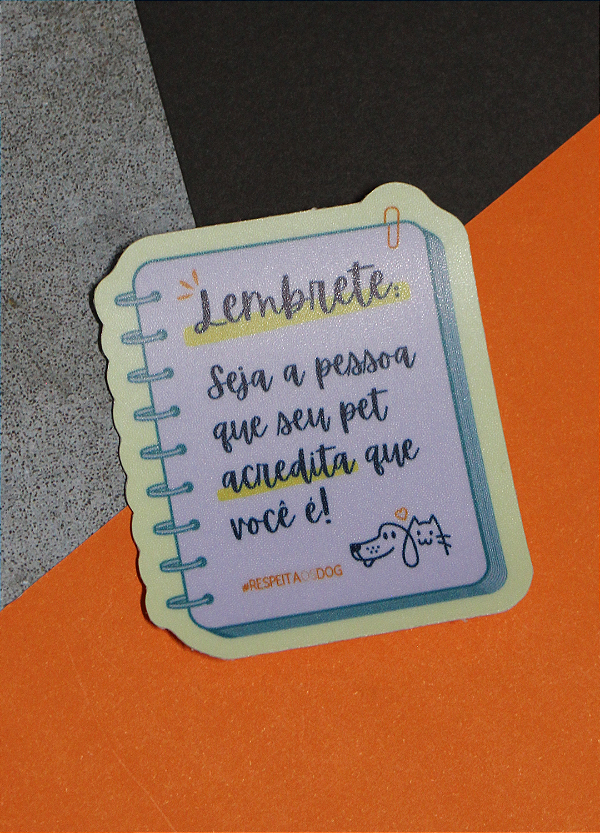 Lembrete:
Seja a pessoa
que seu pet
acredita que
você é!
#RESPEITAOSDOG